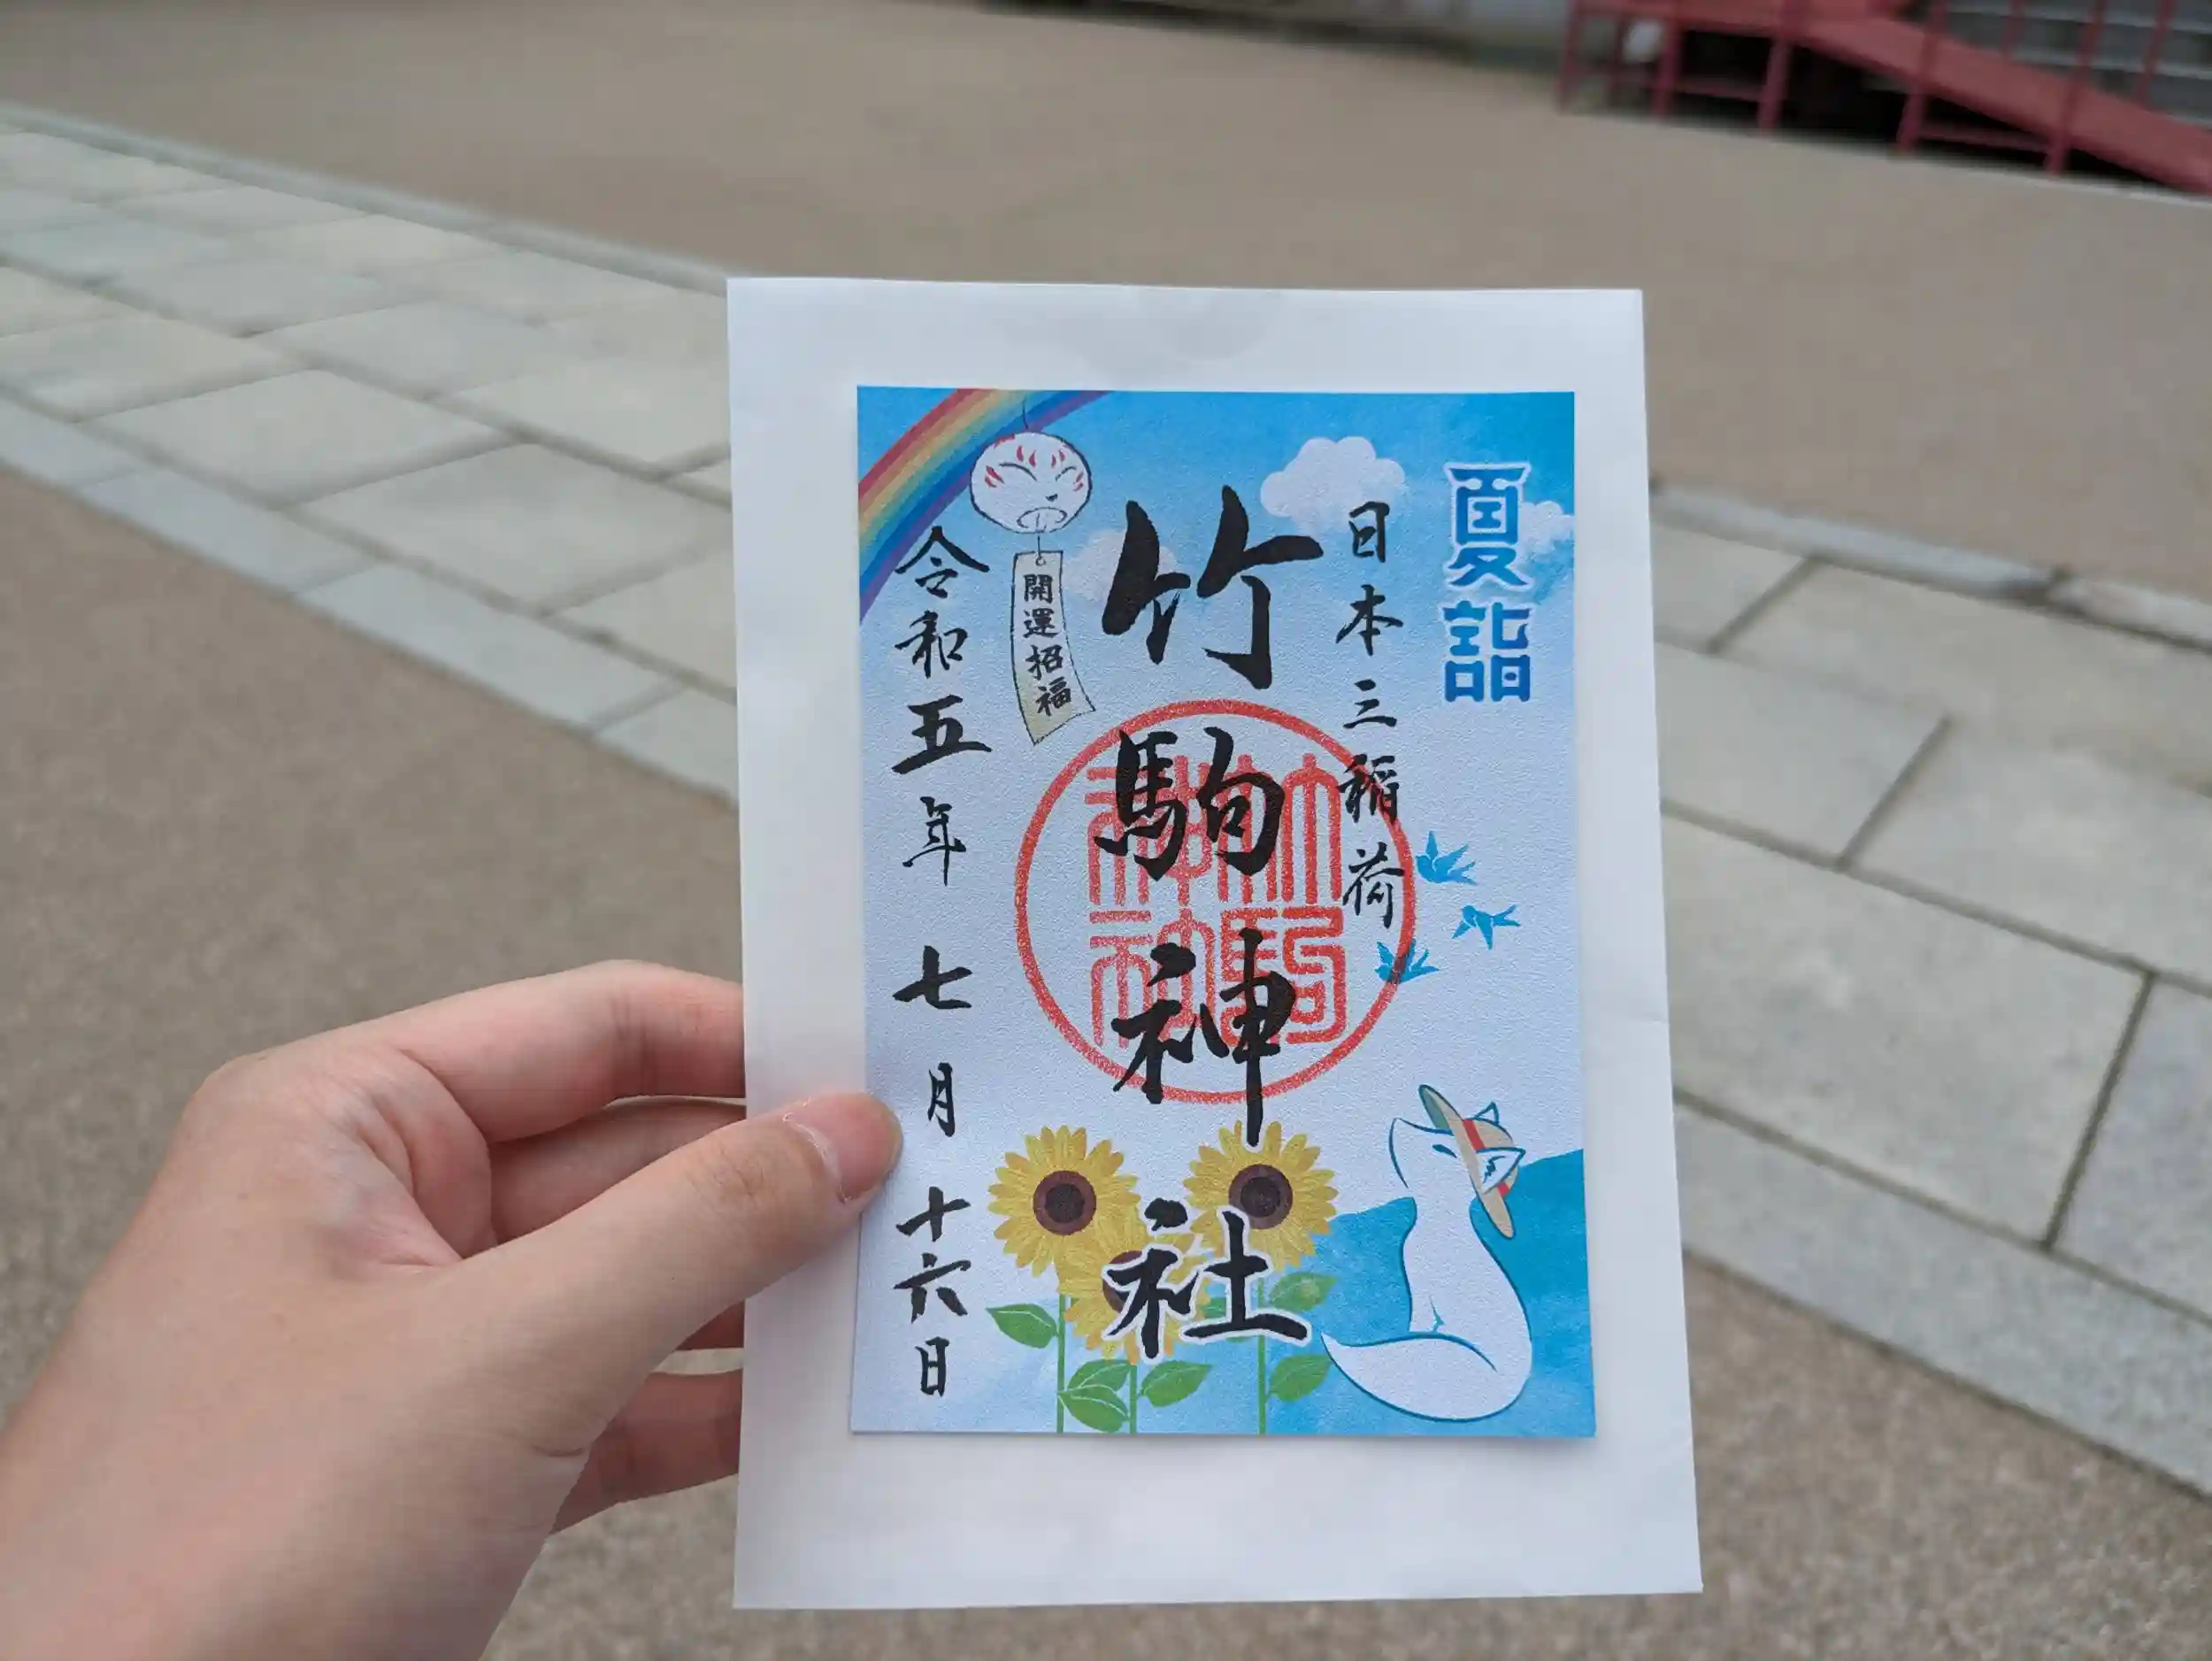 夏詣
日本三稲荷
竹駒神社
開運招福
令和五年七月十六日
竹駒神社